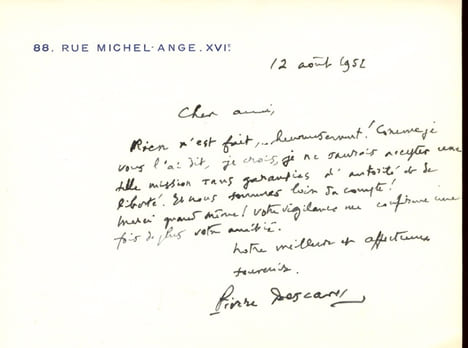 88, RUE MICHEL-ANGE. XVIe
12 août 1952
Cher ami,
Rien n'est fait, .. heureusement ! Comme je
vous l'ai dit, je crois, je ne saurais accepter une
telle mission sans garanties d'autorité et de
liberté. Et nous sommes loin du compte !
Merci quand même ! votre vigilance me confirme une
fois de plus votre amitié.
Notre meilleur et affectueux
souvenir.
Pierre Descaves